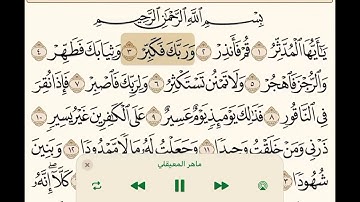 بِسْمِ اللَّهِ الرَّحْمَٰنِ الرَّحِيمِ
يَا أَيُّهَا الْمُدَّثِّرُ ١ قُمْ فَأَنْذِرْ ٢ وَرَبَّكَ فَكَبِّرْ ٣ وَثِيَابَكَ فَطَهِّرْ ٤
وَالرُّجْزَ فَاهْجُرْ ٥ وَلَا تَمْنُنْ تَسْتَكْثِرُ ٦ وَلِرَبِّكَ فَاصْبِرْ ٧ فَإِذَا نُقِرَ
فِي النَّاقُورِ ٨ فَذَٰلِكَ يَوْمَئِذٍ يَوْمٌ عَسِيرٌ ٩ عَلَى الْكَافِرِينَ غَيْرُ يَسِيرٍ ١٠
ذَرْنِي وَمَنْ خَلَقْتُ وَحِيدًا ١١ وَجَعَلْتُ لَهُ مَالًا مَمْدُودًا ١٢ وَبَنِينَ
شُهُودًا ١٣
كَلَّا إِنَّهُ
ماهر المعيقلي